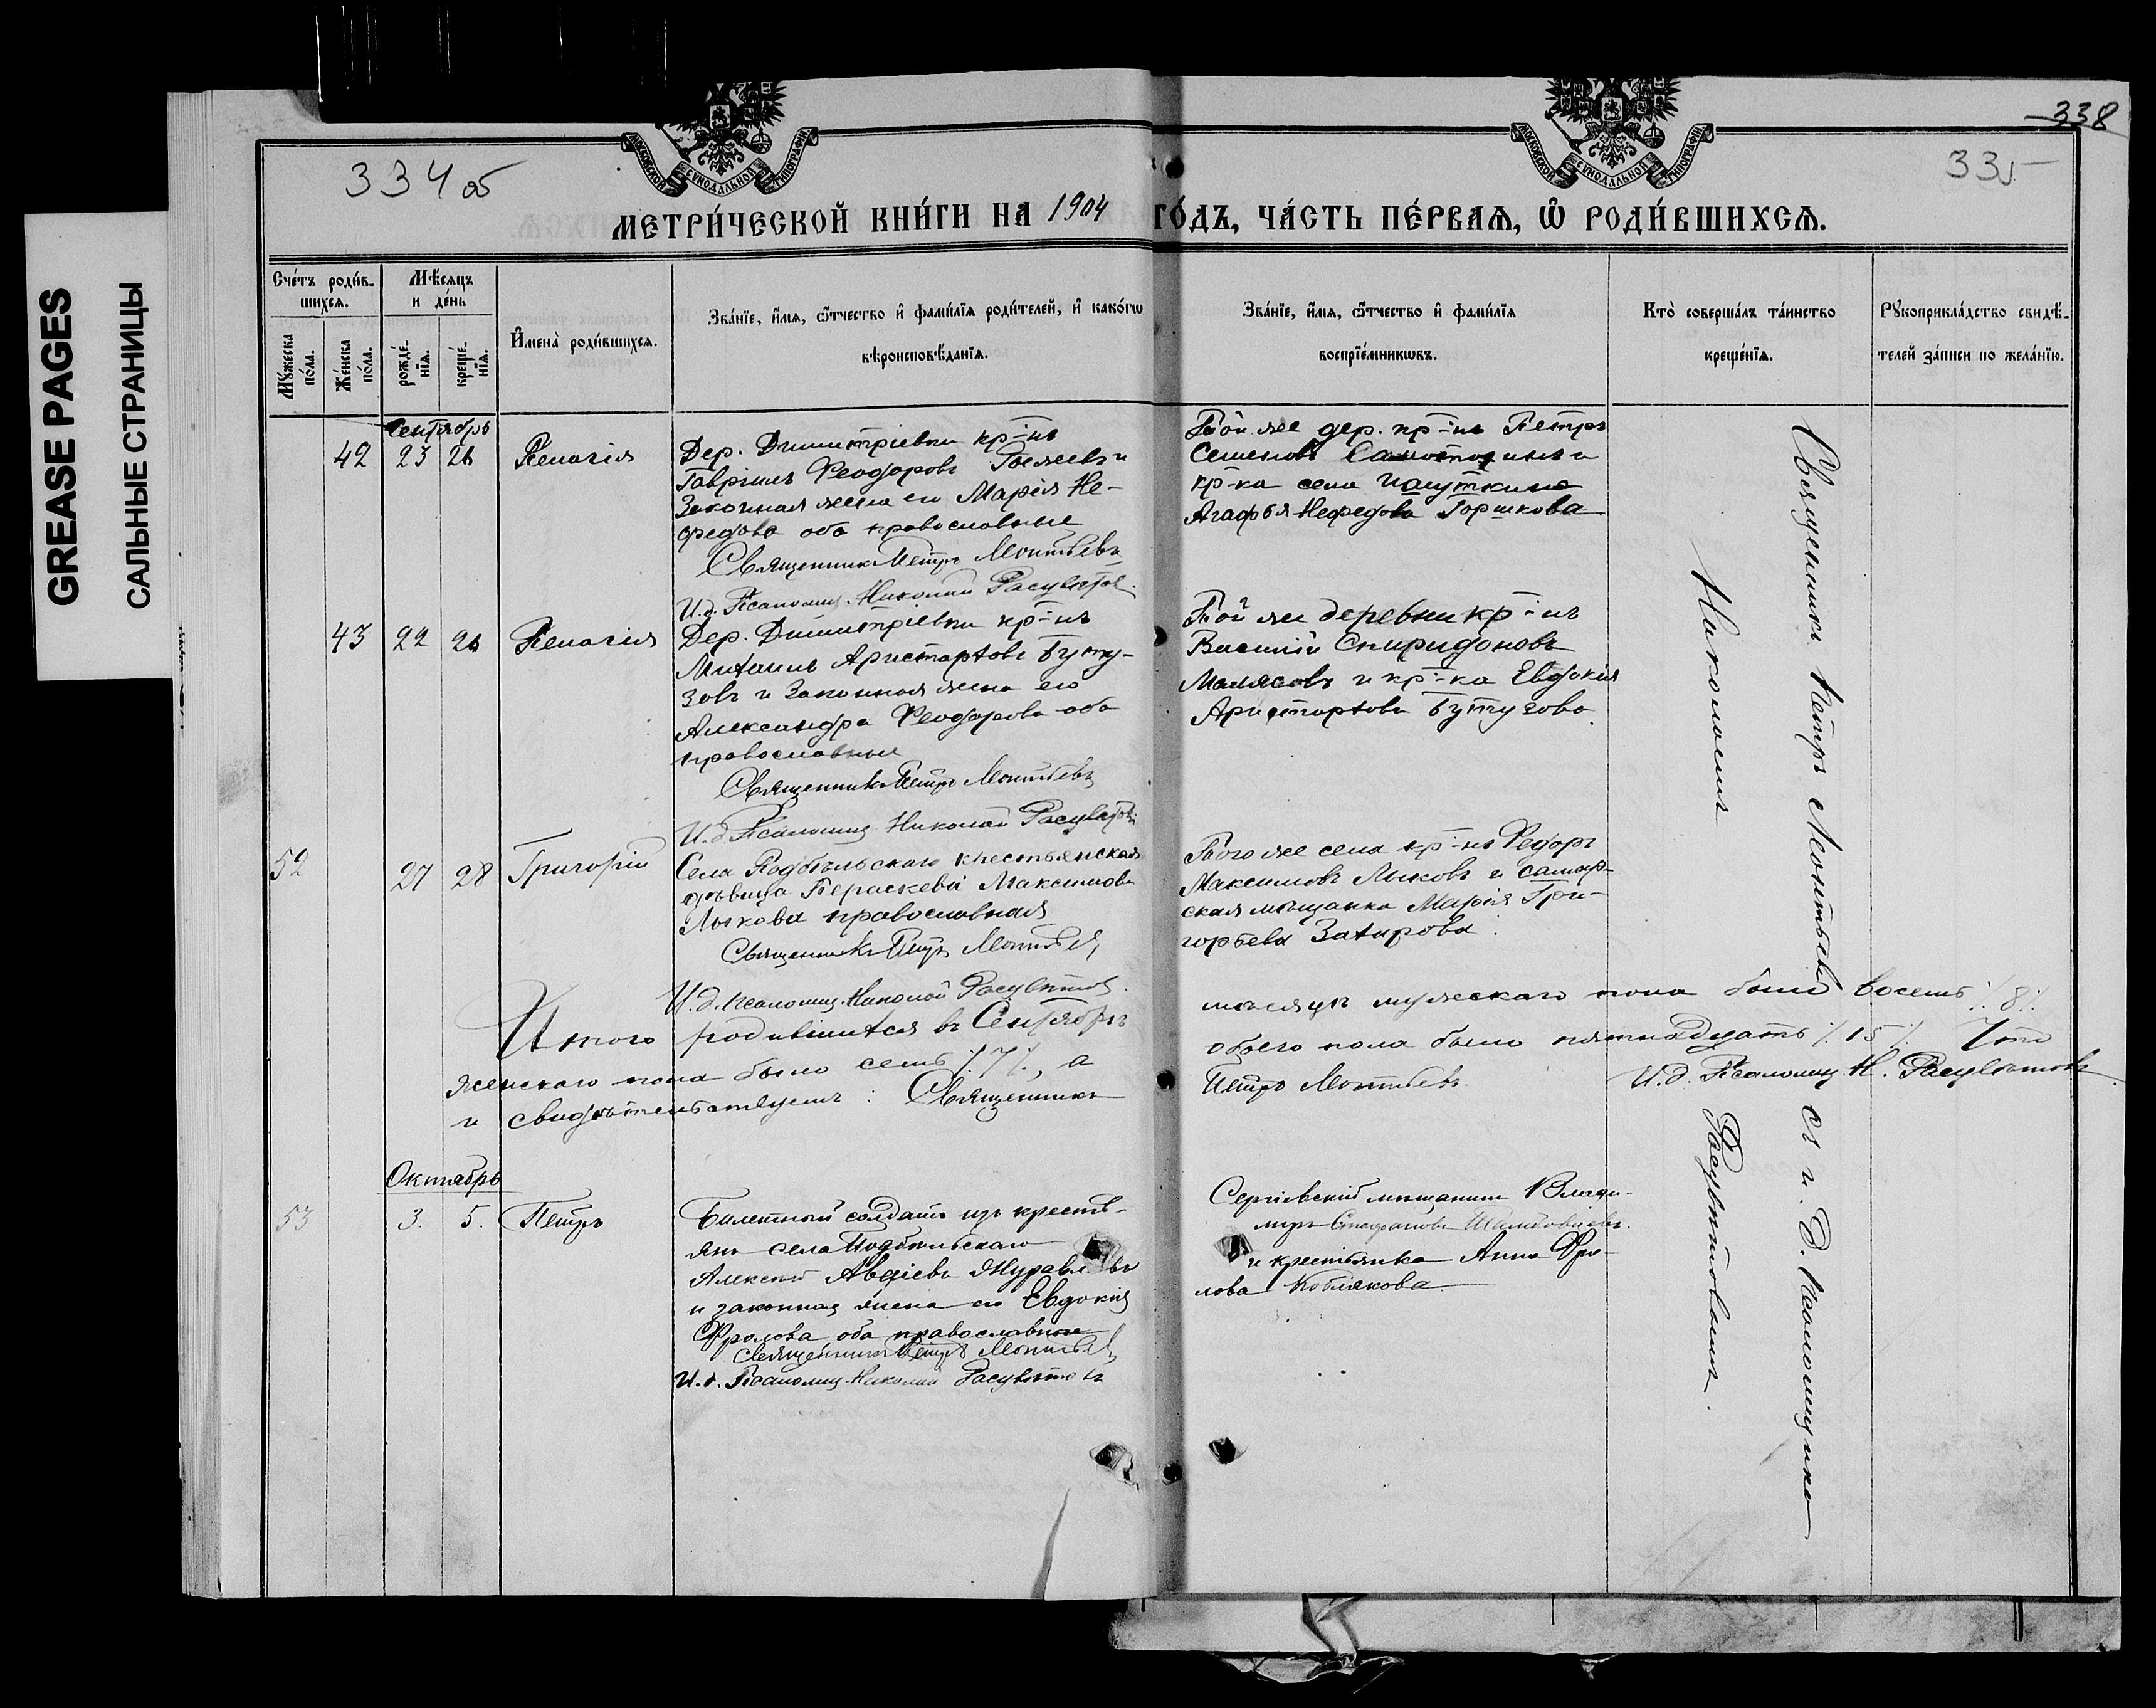 GREASE PAGES
САЛЬНЫЕ СТРАНИЦЫ
338
334 об
335
МОСКОВСКОЙ СѴНОДАЛЬНОЙ ТИПОГРАФІИ
МОСКОВСКОЙ СѴНОДАЛЬНОЙ ТИПОГРАФІИ
МЕТРИ́ЧЕСКОЙ КНИ́ГИ НА 1904 ГО́ДЪ, ЧА́СТЬ ПЕ́РВАѦ, Ѽ РОДИ́ВШИХСѦ.
Сче́тъ роди́в-
шихсѧ.
Мꙋ́жеска по́ла.
Же́нска по́ла.
Мѣ́сѧцъ
и де́нь
рожде́-
нїѧ.
креще́-
нїѧ.
И҆мена̀ роди́вшихсѧ.
Зва́нїе, и҆́мѧ, ѻ҆́тчество и҆ фами́лїѧ роди́телей, и҆ како́гѡ
вѣроисповѣ́данїѧ.
Зва́нїе, и҆́мѧ, ѻ҆́тчество и҆ фами́лїѧ
воспрїе́мникѡвъ.
Кто̀ соверша́лъ та́инство
креще́нїѧ.
Рꙋкоприкла́дство свидѣ́-
телей за́писи по жела́нїю.
Сентябрь
42 23 26 Пелагія
Дер. Димитріевки кр-нъ
Гавріилъ Феодоровъ и
Законная жена его Марія Не-
федова оба православные
Священникъ Петръ Леонтьевъ
И.д. Псаломщ. Николай Расцвѣтовъ
Той же дер. кр-нъ Петръ
Семеновъ и
кр-ка села
Агафья Нефедова Горшкова
43 22 26 Пелагія
Дер. Димитріевки кр-нъ
Михаилъ Аристарховъ Буту-
зовъ и Законная жена его
Александра Феодорова оба
православные
Священникъ Петръ Леонтьевъ
И.д. Псаломщ Николай Расцвѣтовъ
Той же деревни кр-нъ
Василій Спиридоновъ
Малясовъ и кр-ка Евдокія
Аристархова Бутузова.
52 27 28 Григорій
Села Подбѣльскаго крестьянская
дѣвица Параскева Максимова
Лыкова православная
Священникъ Петръ Леонтьевъ
И.д. псаломщ. Николай Расцвѣтовъ.
Того же села кр-нъ Федоръ
Максимовъ Лыковъ и самар-
ская мѣщанка Марія Гри-
горьева Захарова.
Итого родившихся въ Сентябрѣ мѣсяцѣ мужескаго пола было восемь /.8/.
женскаго пола было семь /.7/., а обоего пола было пятнадцать /.15/. Что
и свидѣтельствуемъ: Священникъ Петръ Леонтьевъ. И.д. Псаломщ. Н. Расцвѣтовъ.
Октябрь
53 3. 5. Петръ
Билетный солдатъ изъ кресть-
янъ села Подбѣльскаго
Алексѣй Авдіевъ Журавлевъ
и законная жена его Евдокія
Фролова оба православные
Священникъ Петръ Леонтьевъ
И.д. Псаломщ. Николай Расцвѣтовъ
Сергіевскій мѣщанинъ Влади-
миръ Стефановъ
и крестьянка Анна Фро-
лова Коблякова
Священникъ Петръ Леонтьевъ съ и. д. псаломщика
Николаемъ Расцвѣтовымъ.